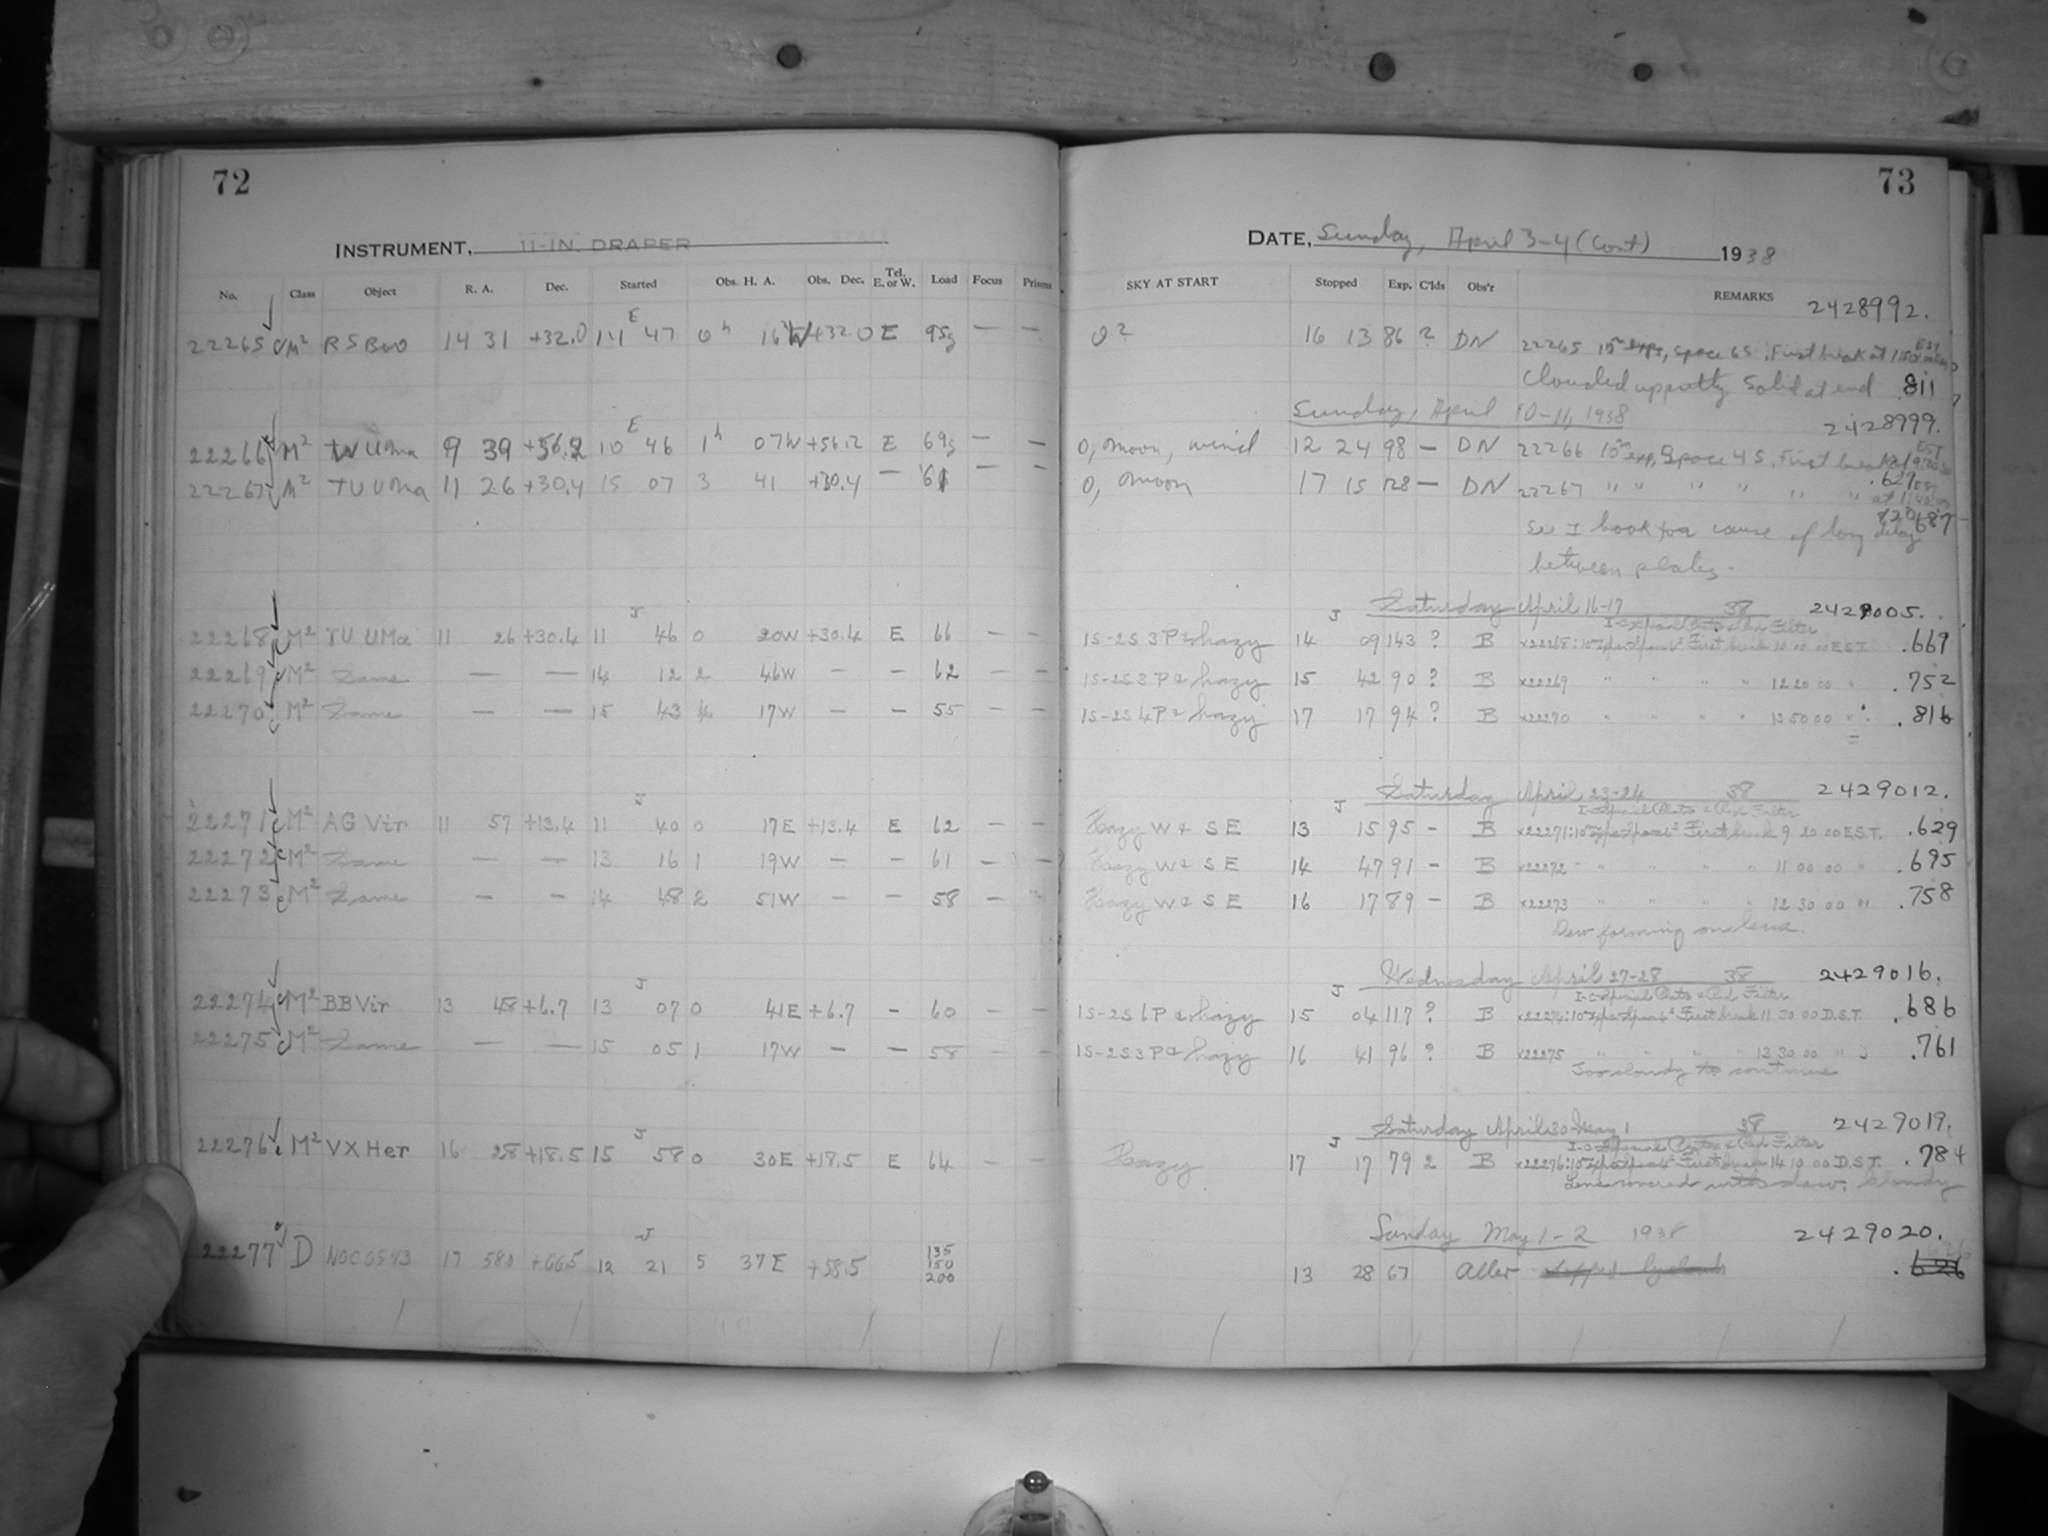 72
INSTRUMENT, 11-IN. DRAPER
No. Class Object R. A. Dec. Started Obs. H. A. Obs. Dec. Tel. E. or W. Load Focus Prisms
E
22265 M² RS Boo 14 31 +32.0 14 47 0h 16 W +32.0 E 95g — —
E
22266 M² UMa 9 39 +56.2 10 46 1h 07W +56.2 E 69g — —
22267 M² TU UMa 11 26 +30.4 15 07 3 41 +30.4 — 61 — —
J
22268 M² TU UMa 11 26 +30.4 11 46 0 20W +30.4 E 66 — —
22269 M² Same — — 14 12 2 46W — — 62 — —
22270 M² Same — — 15 43 4 17W — — 55 — —
J
22271 M² AG Vir 11 57 +13.4 11 40 0 17E +13.4 E 62 — —
22272 M² Same — — 13 16 1 19W — — 61 — —
22273 M² Same — — 14 48 2 51W — — 58 —
J
22274 M² BB Vir 13 48 +6.7 13 07 0 41E +6.7 — 60 — —
22275 M² Same — — 15 05 1 17W — — 58 — —
J
22276 M² VX Her 16 28 +18.5 15 58 0 30E +18.5 E 64 — —
J
22277 D NGC 6543 17 58.0 +66.5 12 21 5 37E +58.5 135
150
200
73
DATE, Sunday, April 3-4 (Cont) 1938
SKY AT START Stopped Exp. C'lds Obs'r REMARKS
2428992.
0? 16 13 86 ? DN 22265 10m exps, space 6S. First break at EST
Clouded up pretty solid at end .811
Sunday, April 10-11, 1938 2428999.
0, moon, wind 12 24 98 — DN 22266 10m exp, Space 4S. First break EST
.627
0, moon 17 15 128 — DN 22267 " " " " " " at
.687
See I book for cause of long delay
between plates.
Saturday April 16-17 38 2429005.
J I-C Special Plate & Red Filter
1S-2S 3P & hazy 14 09 143 ? B x22268: First break 10 10 00 E.S.T. .669
1S-2S 3P & hazy 15 42 90 ? B x22269 " " " 12 20 00 " .752
1S-2S 4P & hazy 17 17 94 ? B x22270 " " " 13 50 00 " .816
Saturday April 23-24 38 2429012.
J I-C Special Plate & Red Filter
Hazy W & S E 13 15 95 — B x22271: First break 9 20 00 E.S.T. .629
Hazy W & S E 14 47 91 — B x22272 " " " 11 00 00 " .695
Hazy W & S E 16 17 89 — B x22273 " " " 12 30 00 " .758
Dew forming on lens.
Wednesday April 27-28 38 2429016.
J I-C Special Plate & Red Filter
1S-2S 6P & hazy 15 04 117 ? B x22274: First break 11 30 00 D.S.T. .686
1S-2S 3P & hazy 16 41 96 ? B x22275 " " " 13 30 00 " .761
Too cloudy to continue
Saturday April 30-May 1 38 2429019.
J I-C Special Plate & Red Filter
Hazy 17 17 79 2 B x22276: First break 14 10 00 D.S.T. .784
Lens covered with dew, cloudy
Sunday May 1-2 1938 2429020.
13 28 67 Aller .626